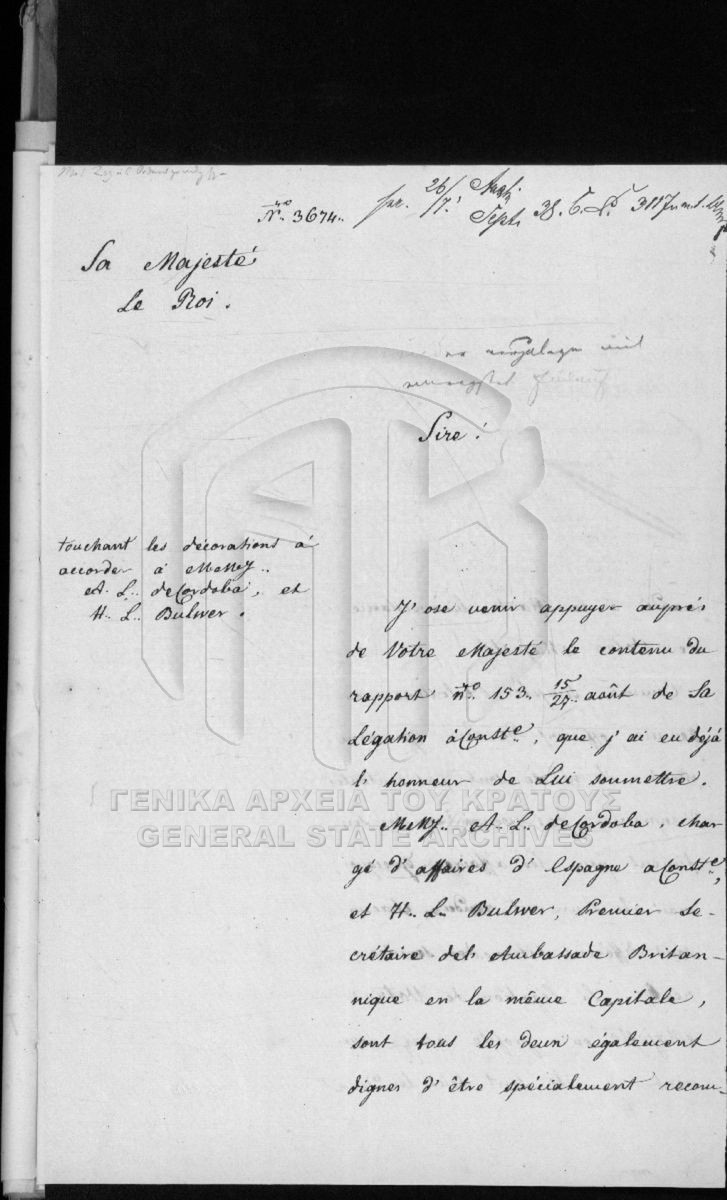 Nro 3674.
pr. 26/7 Sept. 38.
Sa Majesté
Le Roi.
Sire!
touchant les décorations à
accorder à MeMJ..
A. L.. deCordoba, et
H.. L.. Bulwer.
J'ose venir appuyer auprès
de Votre Majesté le contenu du
rapport nro 153. 15/27 août de Sa
Légation àConstle, que j'ai eu déjà
l'honneur de Lui soumettre.
MeMJ.. A.. L.. deCordoba, char
gé d'affaires d'Espagne aConstle,
et H.. L.. Bulwer, Premier Se-
crétaire del'Ambassade Britan-
nique en la même Capitale,
sont tous les deux également
dignes d'être spécialement recom-
ΓΕΝΙΚΑ ΑΡΧΕΙΑ ΤΟΥ ΚΡΑΤΟΥΣ
GENERAL STATE ARCHIVES